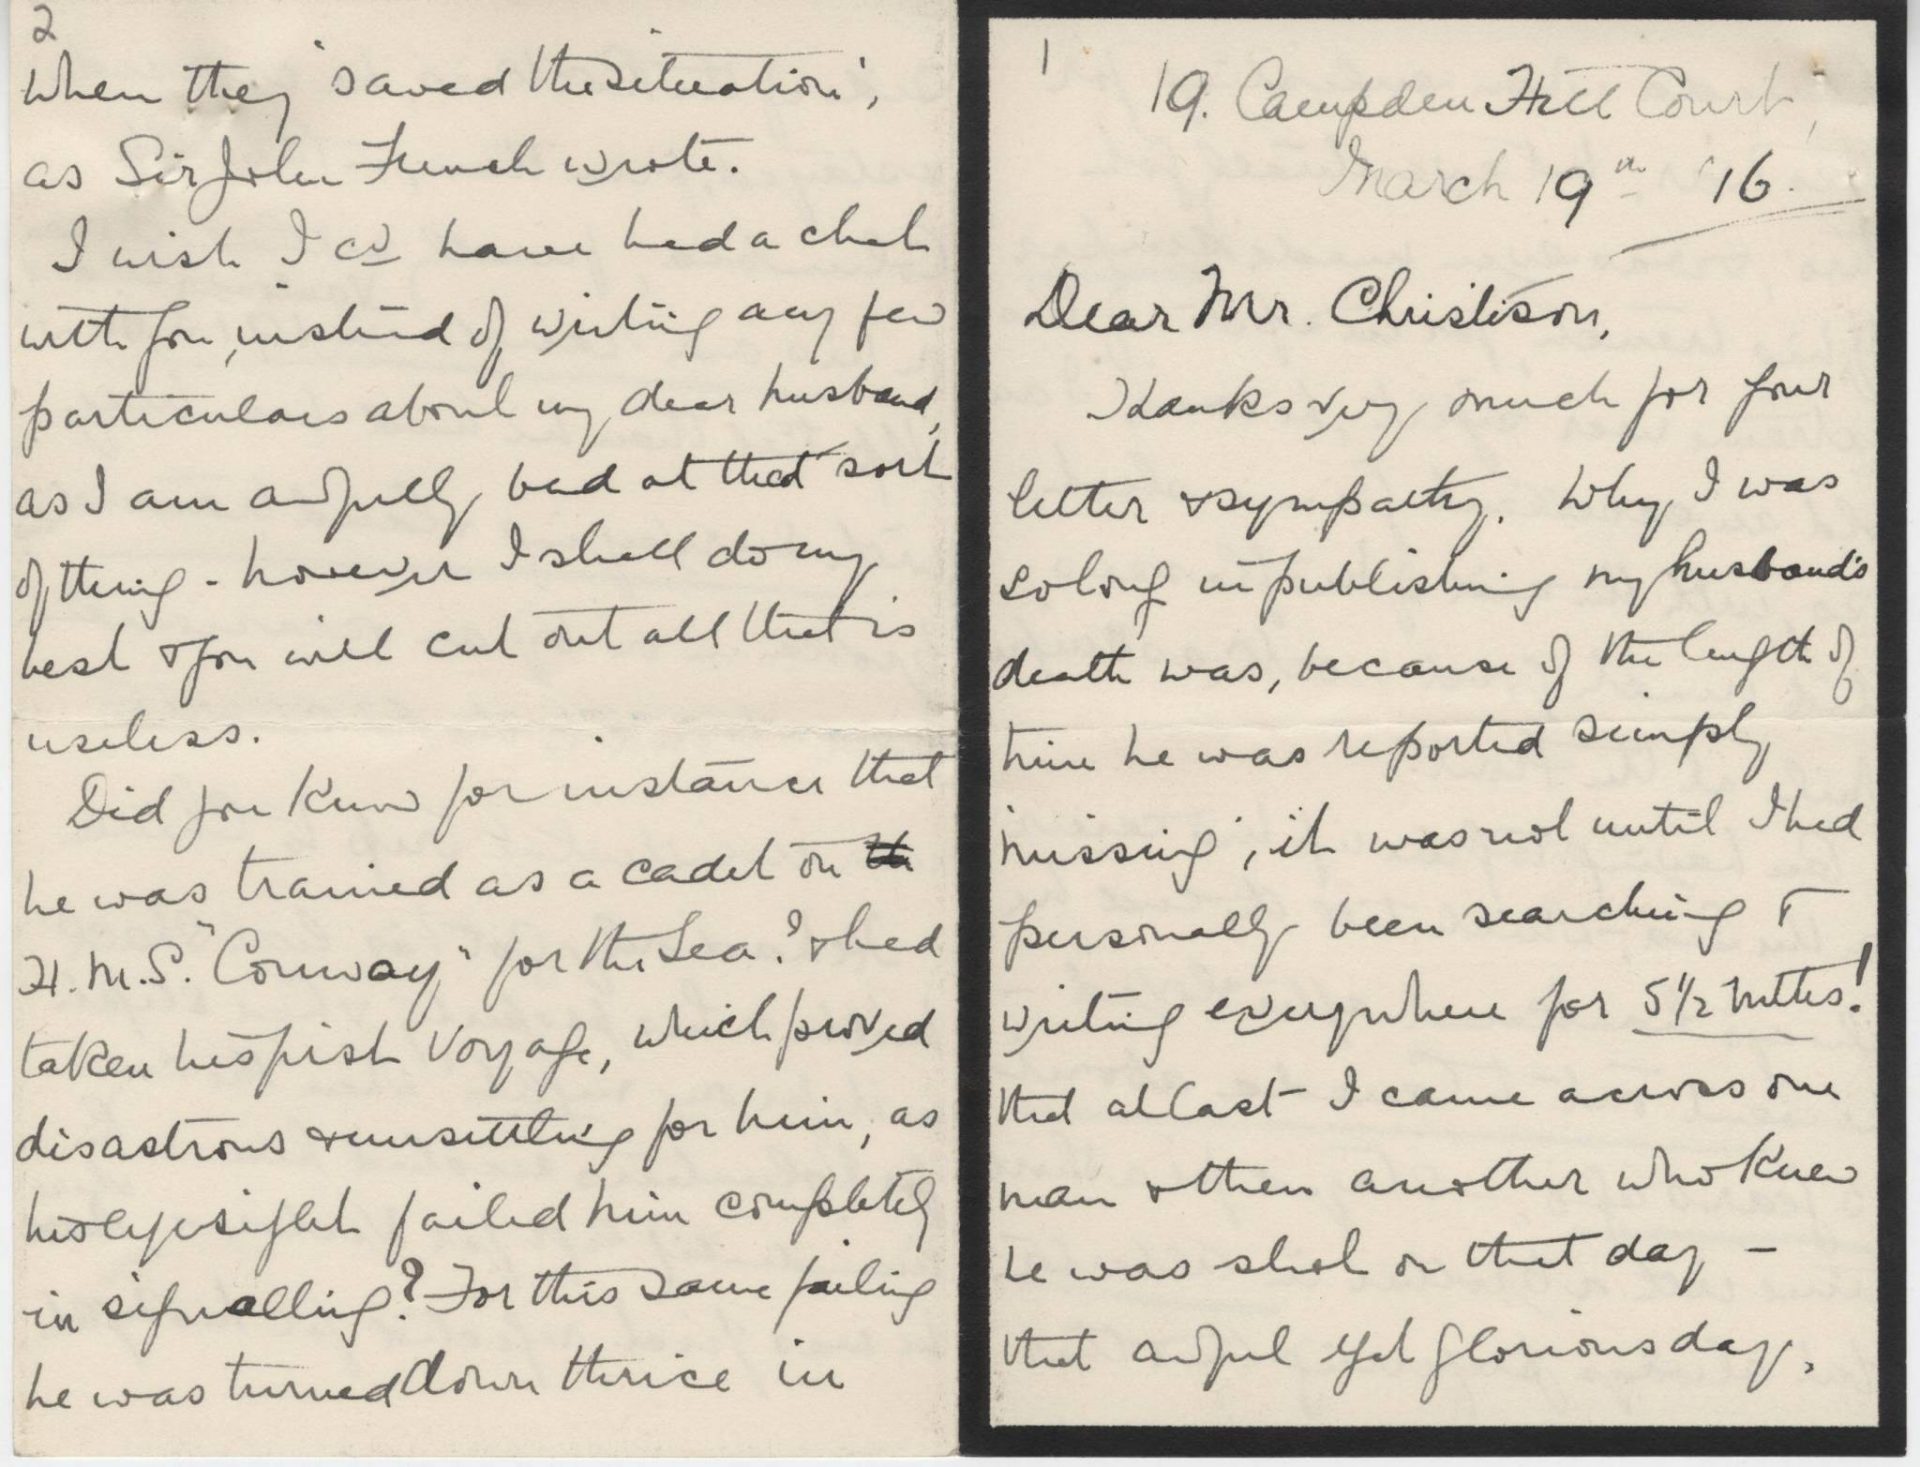 1
19. Campden Hill Court,
March 19th '16.
Dear Mr. Christison,
Thanks very much for your
letter & sympathy. Why I was
so long in publishing my husband's
death was, because of the length of
time he was reported simply
'missing', it was not until I had
personally been searching &
writing everywhere for 5½ mths!
that at last I came across one
man & then another who knew
he was shot on that day –
that awful yet glorious day,
2
when they 'saved the situation',
as Sir John French wrote.
I wish I cd have had a chat
with you, instead of writing any few
particulars about my dear husband,
as I am awfully bad at that sort
of thing - however I shall do my
best & you will cut out all that is
useless.
Did you know for instance that
he was trained as a cadet on the
H.M.S. "Conway" for the Sea? & had
taken his first voyage, which proved
disastrous & unsettling for him, as
his eyesight failed him completely
in signalling? For this same failing
he was turned down thrice in